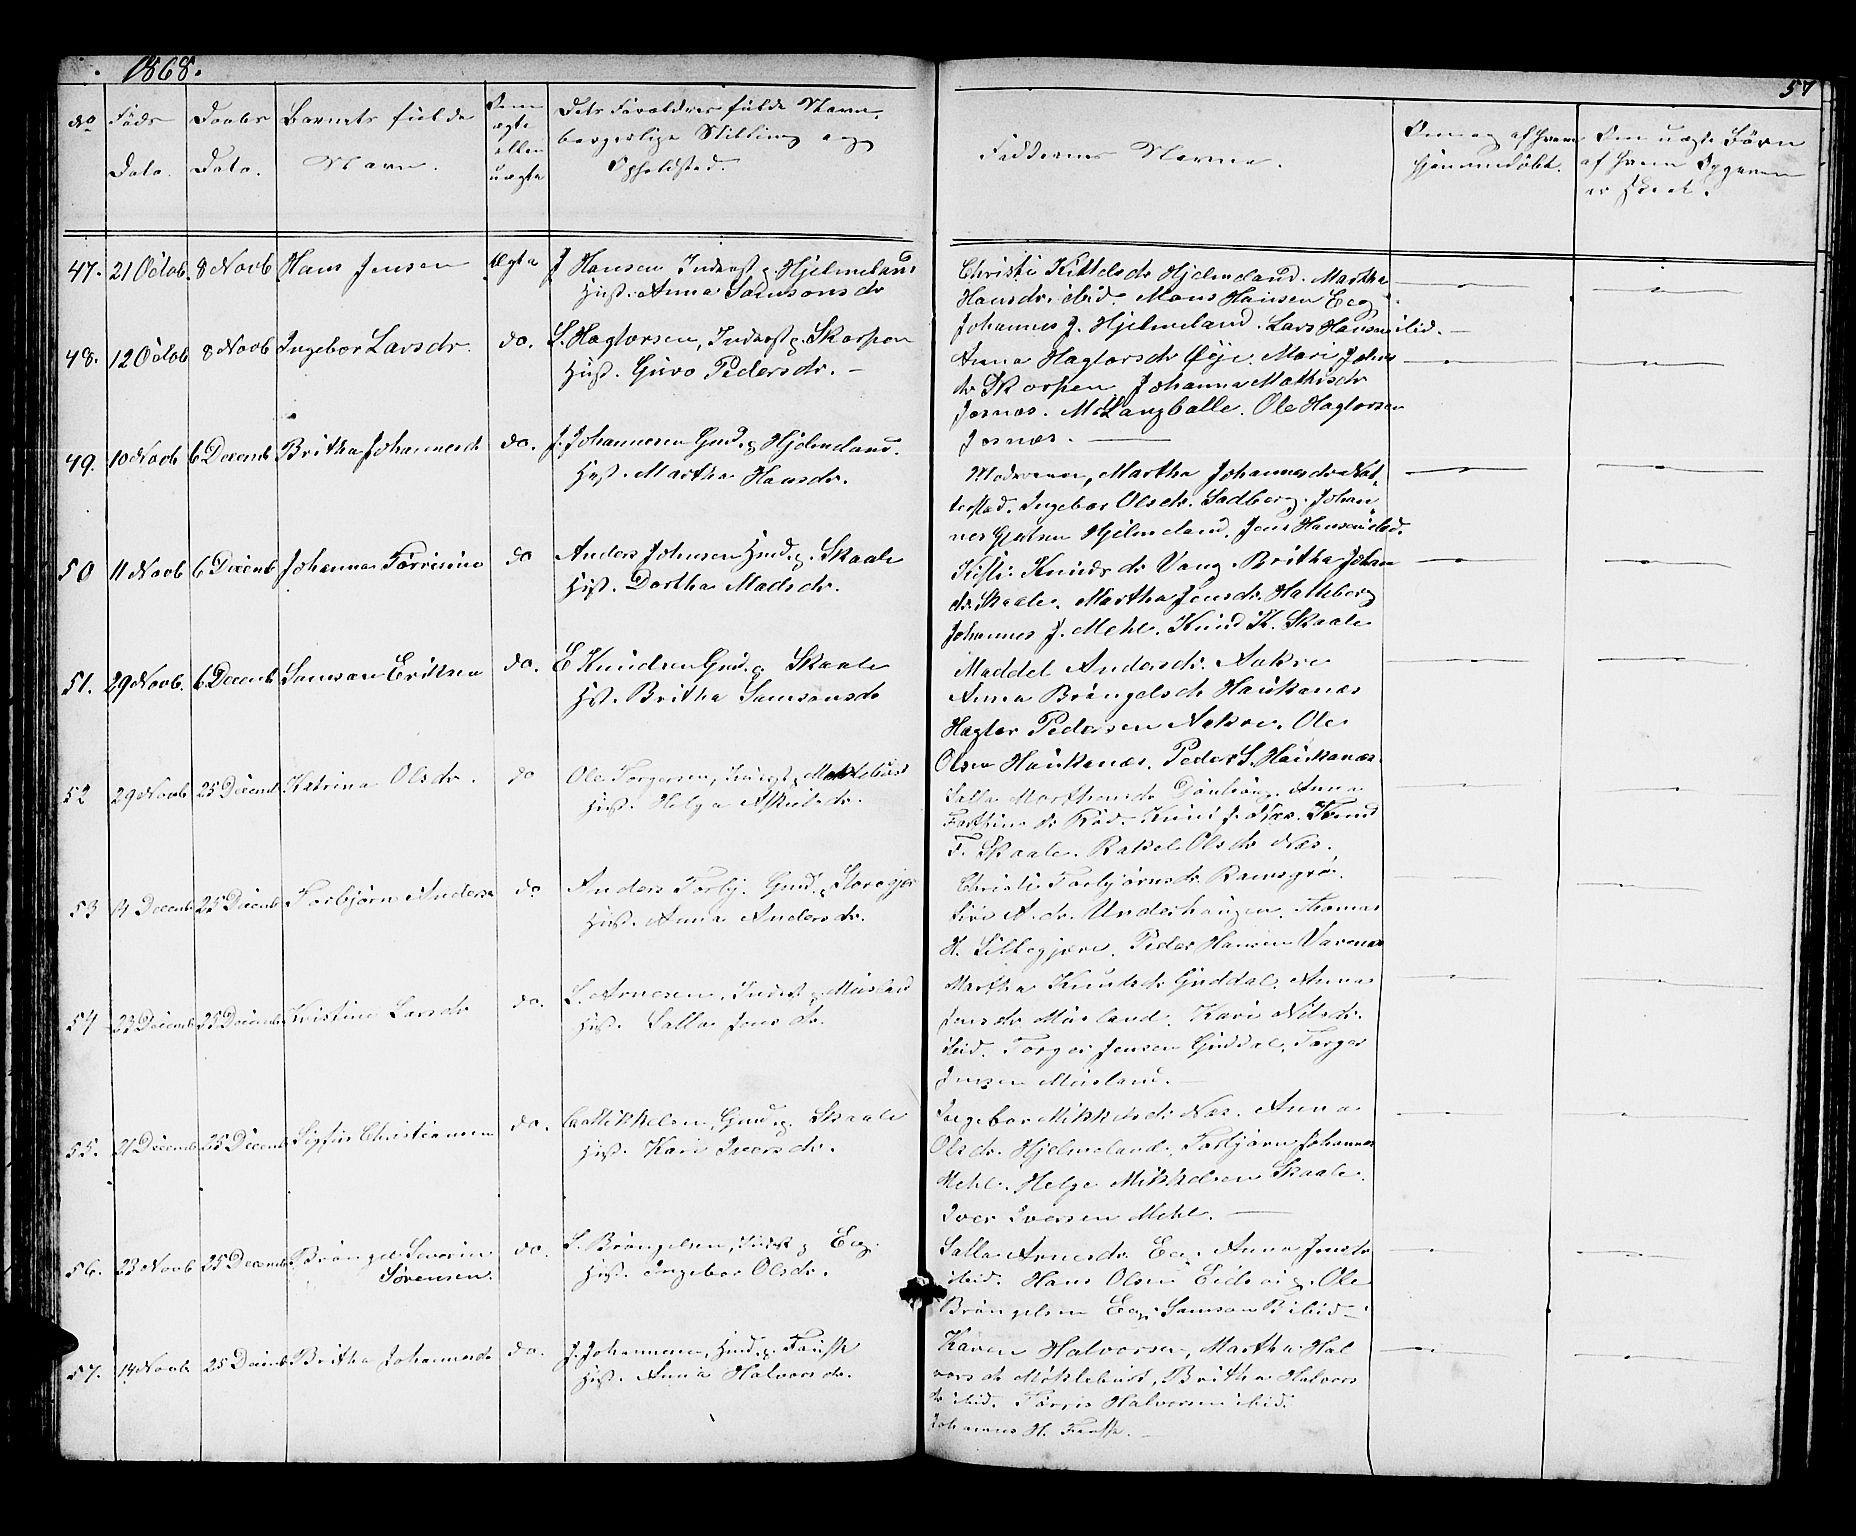 1868.
57
No
Føds
Dato.
Daabs
Dato.
Barnets fulde
Navn.
Om
ægte
eller
uægte
Dets Forældres fulde Navn,
borgerlige Stilling og
Opholdsted.
Faddernes Navne.
Om og af hvem
hjemmedøbt.
Om uægte Børn
af hvem Opgaven
er skeet.
47. 21 Octob. 8 Novb Hans Jensen ægte J Hansen Inderst p. Hjelmeland
Hust. Anna Samsonsdr
Christi Kittelsdr Hjelmeland. Martha
Hansdr. ibid. Mons Hansen Eeg.
Johannes J. Hjelmeland. Lars Hansen ibid.
48. 12 Octob 8 Novb Ingebor Larsdr. do. L. Hagtorsen, Inderst p. Skorpen
Hust. Guro Pedersdr.
Anna Hagtorsdr Øje. Mari Johns
dr Skorpen Johanna Mathisdr
Jernæs. M. Langballe. Ole Hagtorsen
Jernæs.
49. 10 Novb 6 Decemb Britha Johannesdr do. J. Johannesen Gmd. p Hjelmeland.
Hust. Martha Hansdr.
Moderen, Martha Johannesdr Nat-
terstad. Ingebor Olsdr. Sadberg. Johan
nes Hjelmeland. Jens Hansen ibid.
50 11 Novb 6 Decemb Johanna do Anders Johnsen Hmd. p. Skaale
Hust. Dortha Madsdr.
Kisti Knudsdr Vang. Britha Johan
dr. Skaale. Martha Jensdr. Hatteberg
Johannes J. Mehl. Knud K. Skaale
51. 29 Novb. 6 Decemb Samson Eriksen do. E Knudsen Gmd. p Skaale
Hst. Britha Samsonsdr
Maddel Andersdr. Aakre
Anna Brÿngelsdr Haukanæs
Hagtor Pedersen Aakre. Ole
Olsen Haukanæs. Peder S. Haukanæs.
52 29 Novb 25 Decemb Katrina Olsdr. do Ole Torgersen, Inderst p Møklebust
Hust. Helga Askildsdr.
Salla Marthinsdr Anna
Knud J. Næs. Knud
F. Skaale. Rakel Olsdr Næs.
53 14 Decemb 25 Decemb Torbjørn Anders do Anders Torbj. Gmd. p.
Hust. Anna Andersdr.
Christi Torbjørnsdr. Ramsgrø.
Siri A. dr. Underhaugen. Thomas
H. Lillegjære. Peder Hansen
54 23 Decemb 25 Decemb Kristine Larsdr do. L. Arnesen, Indst p Musland
Hust. Salla Jensdr.
Martha Knutsdr Guddal. Anna
Jensdr Musland. Kari Nilsdr.
ibid. Torger Jensen Guddal, Torger
Jensen Musland.
55. 21 Decemb 25 Decemb Sigfus Christiansen do. C. Mikkelsen, Gmd. p. Skaale
Hust. Kari Iversdr.
Ingebor Mikkelsdr. Næs. Anna
Olsdr. Hjelmeland. Torbjørn Johannes
Mehl. Helge Mikkelsen Skaale.
Iver Iversen Mehl.
56. 23 Novb 25 Decemb Brÿngel Severin
Sørensen.
do. S. Brÿngelsen, Indst p Eeg.
Hust. Ingebor Olsdr.
Salla Arnesdr. Eeg. Anna Jensdr
ibid. Hans Olsen Ole
Brÿngelsen Eeg. Samson B. ibid.
57. 14 Novb 25 Decemb Britha Johannesdr do. J. Johannesen, Hmd. p.
Hust. Anna Halvorsdr.
Karen Halvorsen, Martha Hal
vorsdr Møklebust, Britha Halvors
dr ibid. Tørris Halvorsen ibid.
Johannes H.